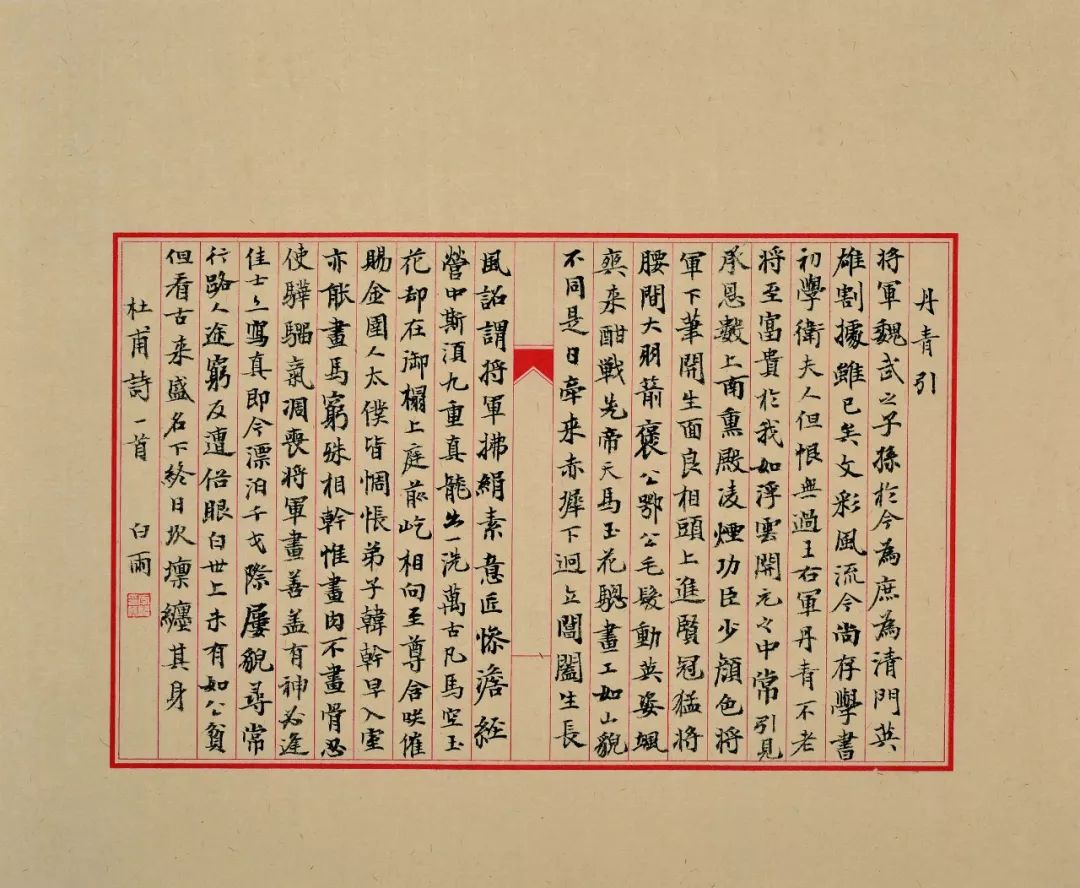 丹青引
将軍魏武之子孫於今為庶為清門英
雄割據雖已矣文彩風流今尚存學書
初學衛夫人但恨無過王右軍丹青不老
將至富貴於我如浮雲開元之中常引見
承恩數上南熏殿凌煙功臣少顏色将
軍下筆開生面良相頭上進賢冠猛将
腰間大羽箭褒公鄂公毛髮動英姿颯
爽来酣戰先帝天馬玉花驄畫工如山貌
不同是日牵来赤墀下迥立閶闔生長
風詔謂将軍拂絹素意匠惨澹經
營中斯須九重真龍出一洗萬古凡馬空玉
花却在御榻上庭前屹相向至尊含咲催
賜金圉人太僕皆惆悵弟子韓幹早入室
亦能畫馬窮殊相幹惟畫肉不畫骨忍
使驊騮氣凋喪将軍畫善盖有神必逢
佳士亠寫真即今漂泊干戈際屢貌尋常
行路人途窮反遭俗眼白世上未有如公貧
但看古来盛名下終日坎壈纏其身
杜甫詩一首 白雨